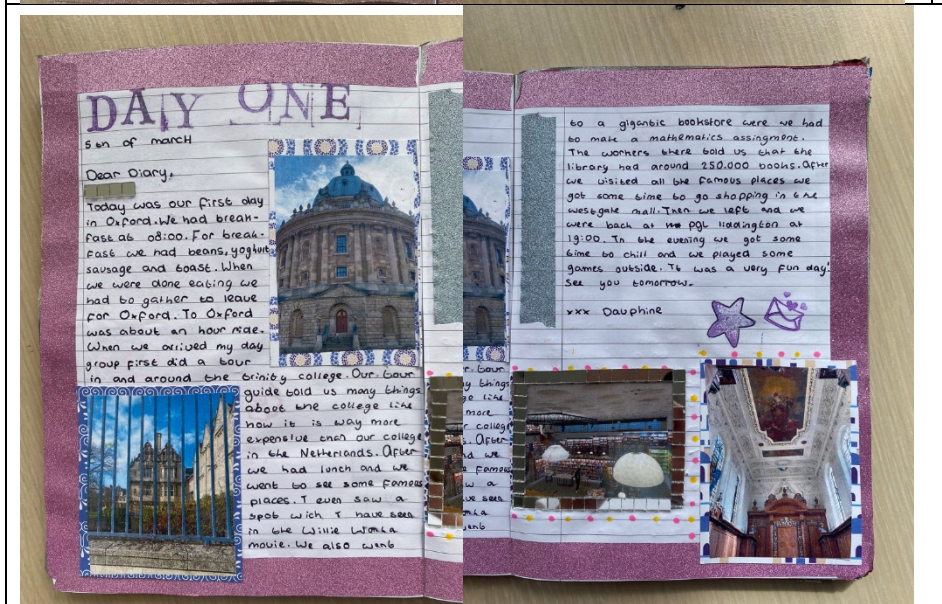 DAY ONE
5th of march
Dear Diary,
Today was our first day
in Oxford. We had break-
fast at 08:00. For break-
fast we had beans, yoghurt
sausage and toast. When
we were done eating we
had to gather to leave
for Oxford. To Oxford
was about an hour ride.
When we arrived my day
group first did a tour
in and around the trinity college. Our tour
guide told us many things
about the college like
how it is way more
expensive than our college
in the Netherlands. After
we had lunch and we
went to see some famous
places. I even saw a
spot wich I have seen
in the Willie Wonka
movie. We also went
to a gigantic bookstore were we had
to make a mathematics assingment.
The workers there told us that the
library had around 250.000 books. After
we visited all the famous places we
got some time to go shopping in the
westgate mall. Then we left and we
were back at PGL liddington at
19:00. In the evening we got some
time to chill and we played some
games outside. It was a very fun day!
See you tomorrow.
xxx Dauphine